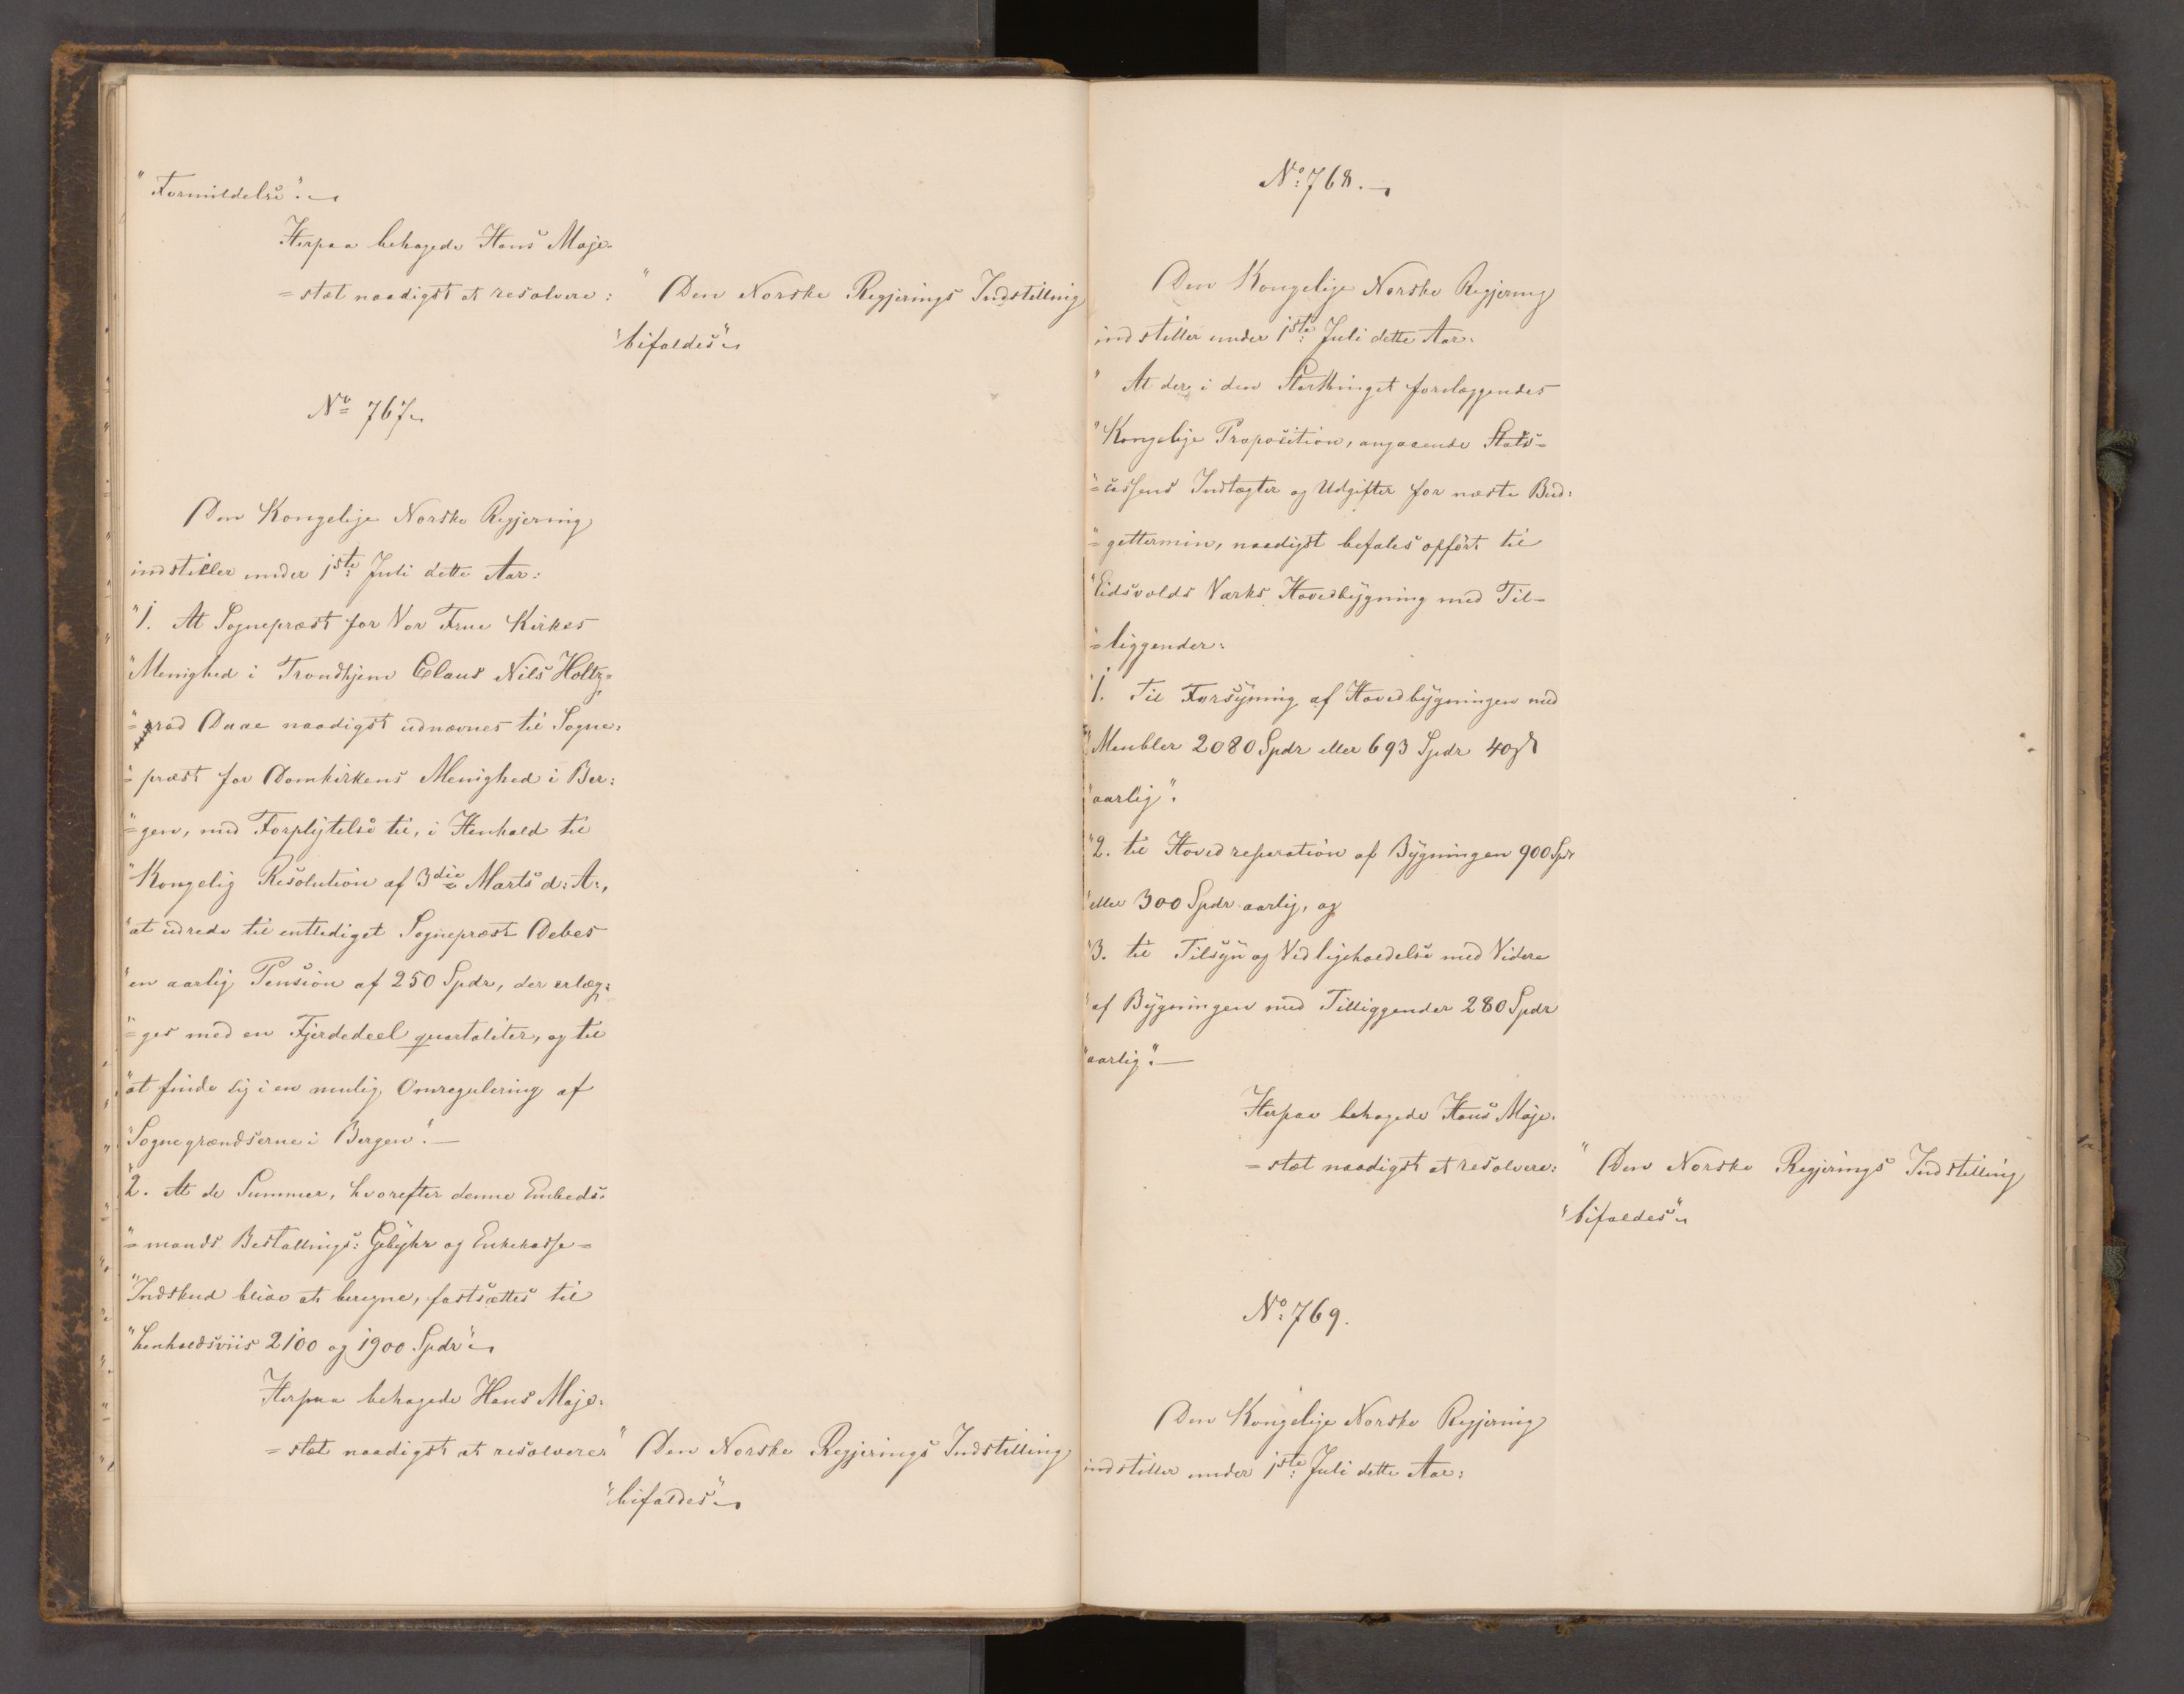 "Formildelse".
Herpaa behagede Hans Maje-
=stæt naadigst at resolvere: "Den Norske Regjerings Indstilling
"bifaldes"
No 767.
Den Kongelige Norske Regjering
indstiller under 1ste Juli dette Aar:
"1. At Sognepræst for Vor Frue Kirkes
"Menighed i Trondhjem Claus Nils Holtz=
"=grad Daae naadigst udnævnes til Sogne-
"=præst for Domkirkens Menighed i Ber:
"=gen, med Forplígtelse til, i Henhold til
"Kongelig Resolution af 3die Marts d: A:,
"at udrede til entlediget Sognepræst Debes
"en aarlig Pension af 250 Spdr, der erlæg:
"=ges med en Fjerdedeel quartaliter, og til
"at finde sig i en mulig Omregulering af
"Sognegrændserne i Bergen".
"2. At de Summer, hvorefter denne Embeds-
"=mands Bestallings: Gebyhr og Enkekasse=
"Indskud blive at beregne, fastsættes til
"henholdsviis 2100 og 1900 Spdr"
Herpaa behagede Hans Maje-
=stæt naadigst at resolvere: "Den Norske Regjerings Indstilling
"bifaldes"
No: 768.
Den Kongelige Norske Regjering
indstiller under 1ste: Juli dette Aar:
"At der i den Storthinget forelæggendes
"Kongelige Proposition, angaaende Stats=
"=cassens Indtægter og Udgifter for næste Bud:
"=gettermin, naadigst befales opført til
"Eidsvolds Værks Hovedbygning med Til=
"=liggender:
"1. Til Forsyning af Hovedbygningen med
"Meubler 2080 Spdr eller 693 Spdr 40 ß
"aarlig".
"2. til Hovedreparation af Bygningen 900 Spdr
"eller 300 Spdr aarlig, og
"3. til Tilsyn og Vedligeholdelse med Videre
"af Bygningen med Tilliggender 280 Spdr
"aarlig".
Herpaa behagede Hans Maje-
=stæt naadigst at resolvere: "Den Norske Regjerings Indstilling
"bifaldes"
No: 769.
Den Kongelige Norske Regjering
indstiller under 1ste: Juli dette Aar: